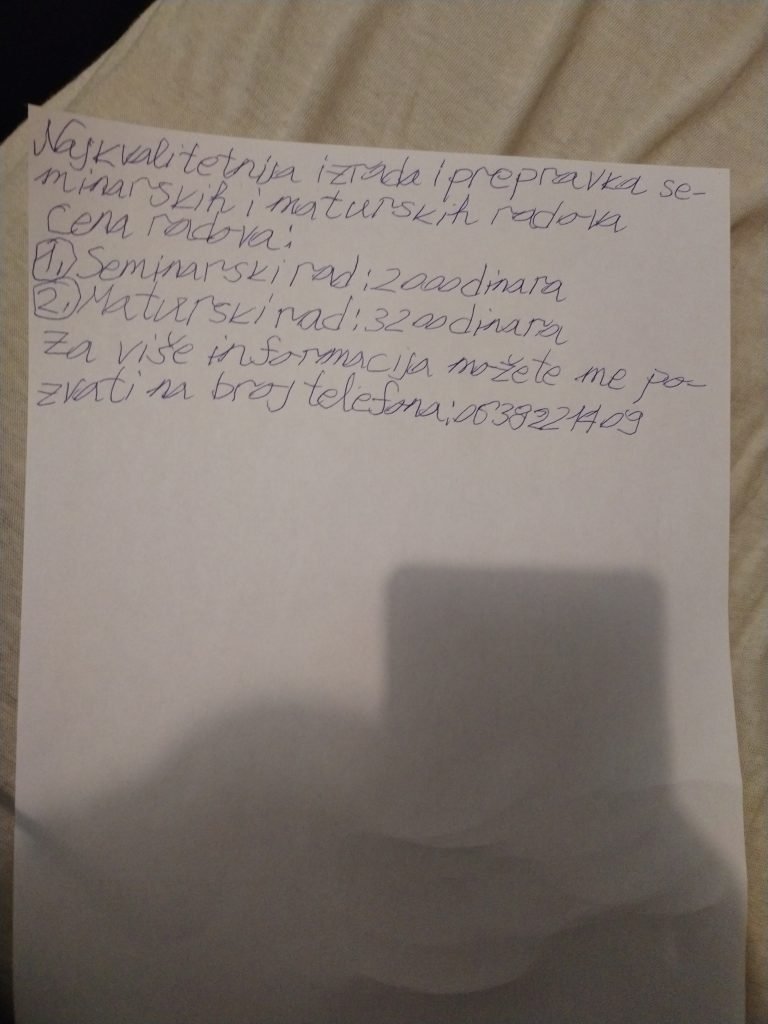 Najkvalitetnija izrada i prepravka se-
minarskih i maturskih radova
Cena radova:
1. Seminarski rad: 2000 dinara
2. Maturski rad: 3200 dinara
Za više informacija možete me po-
zvati na broj telefona: